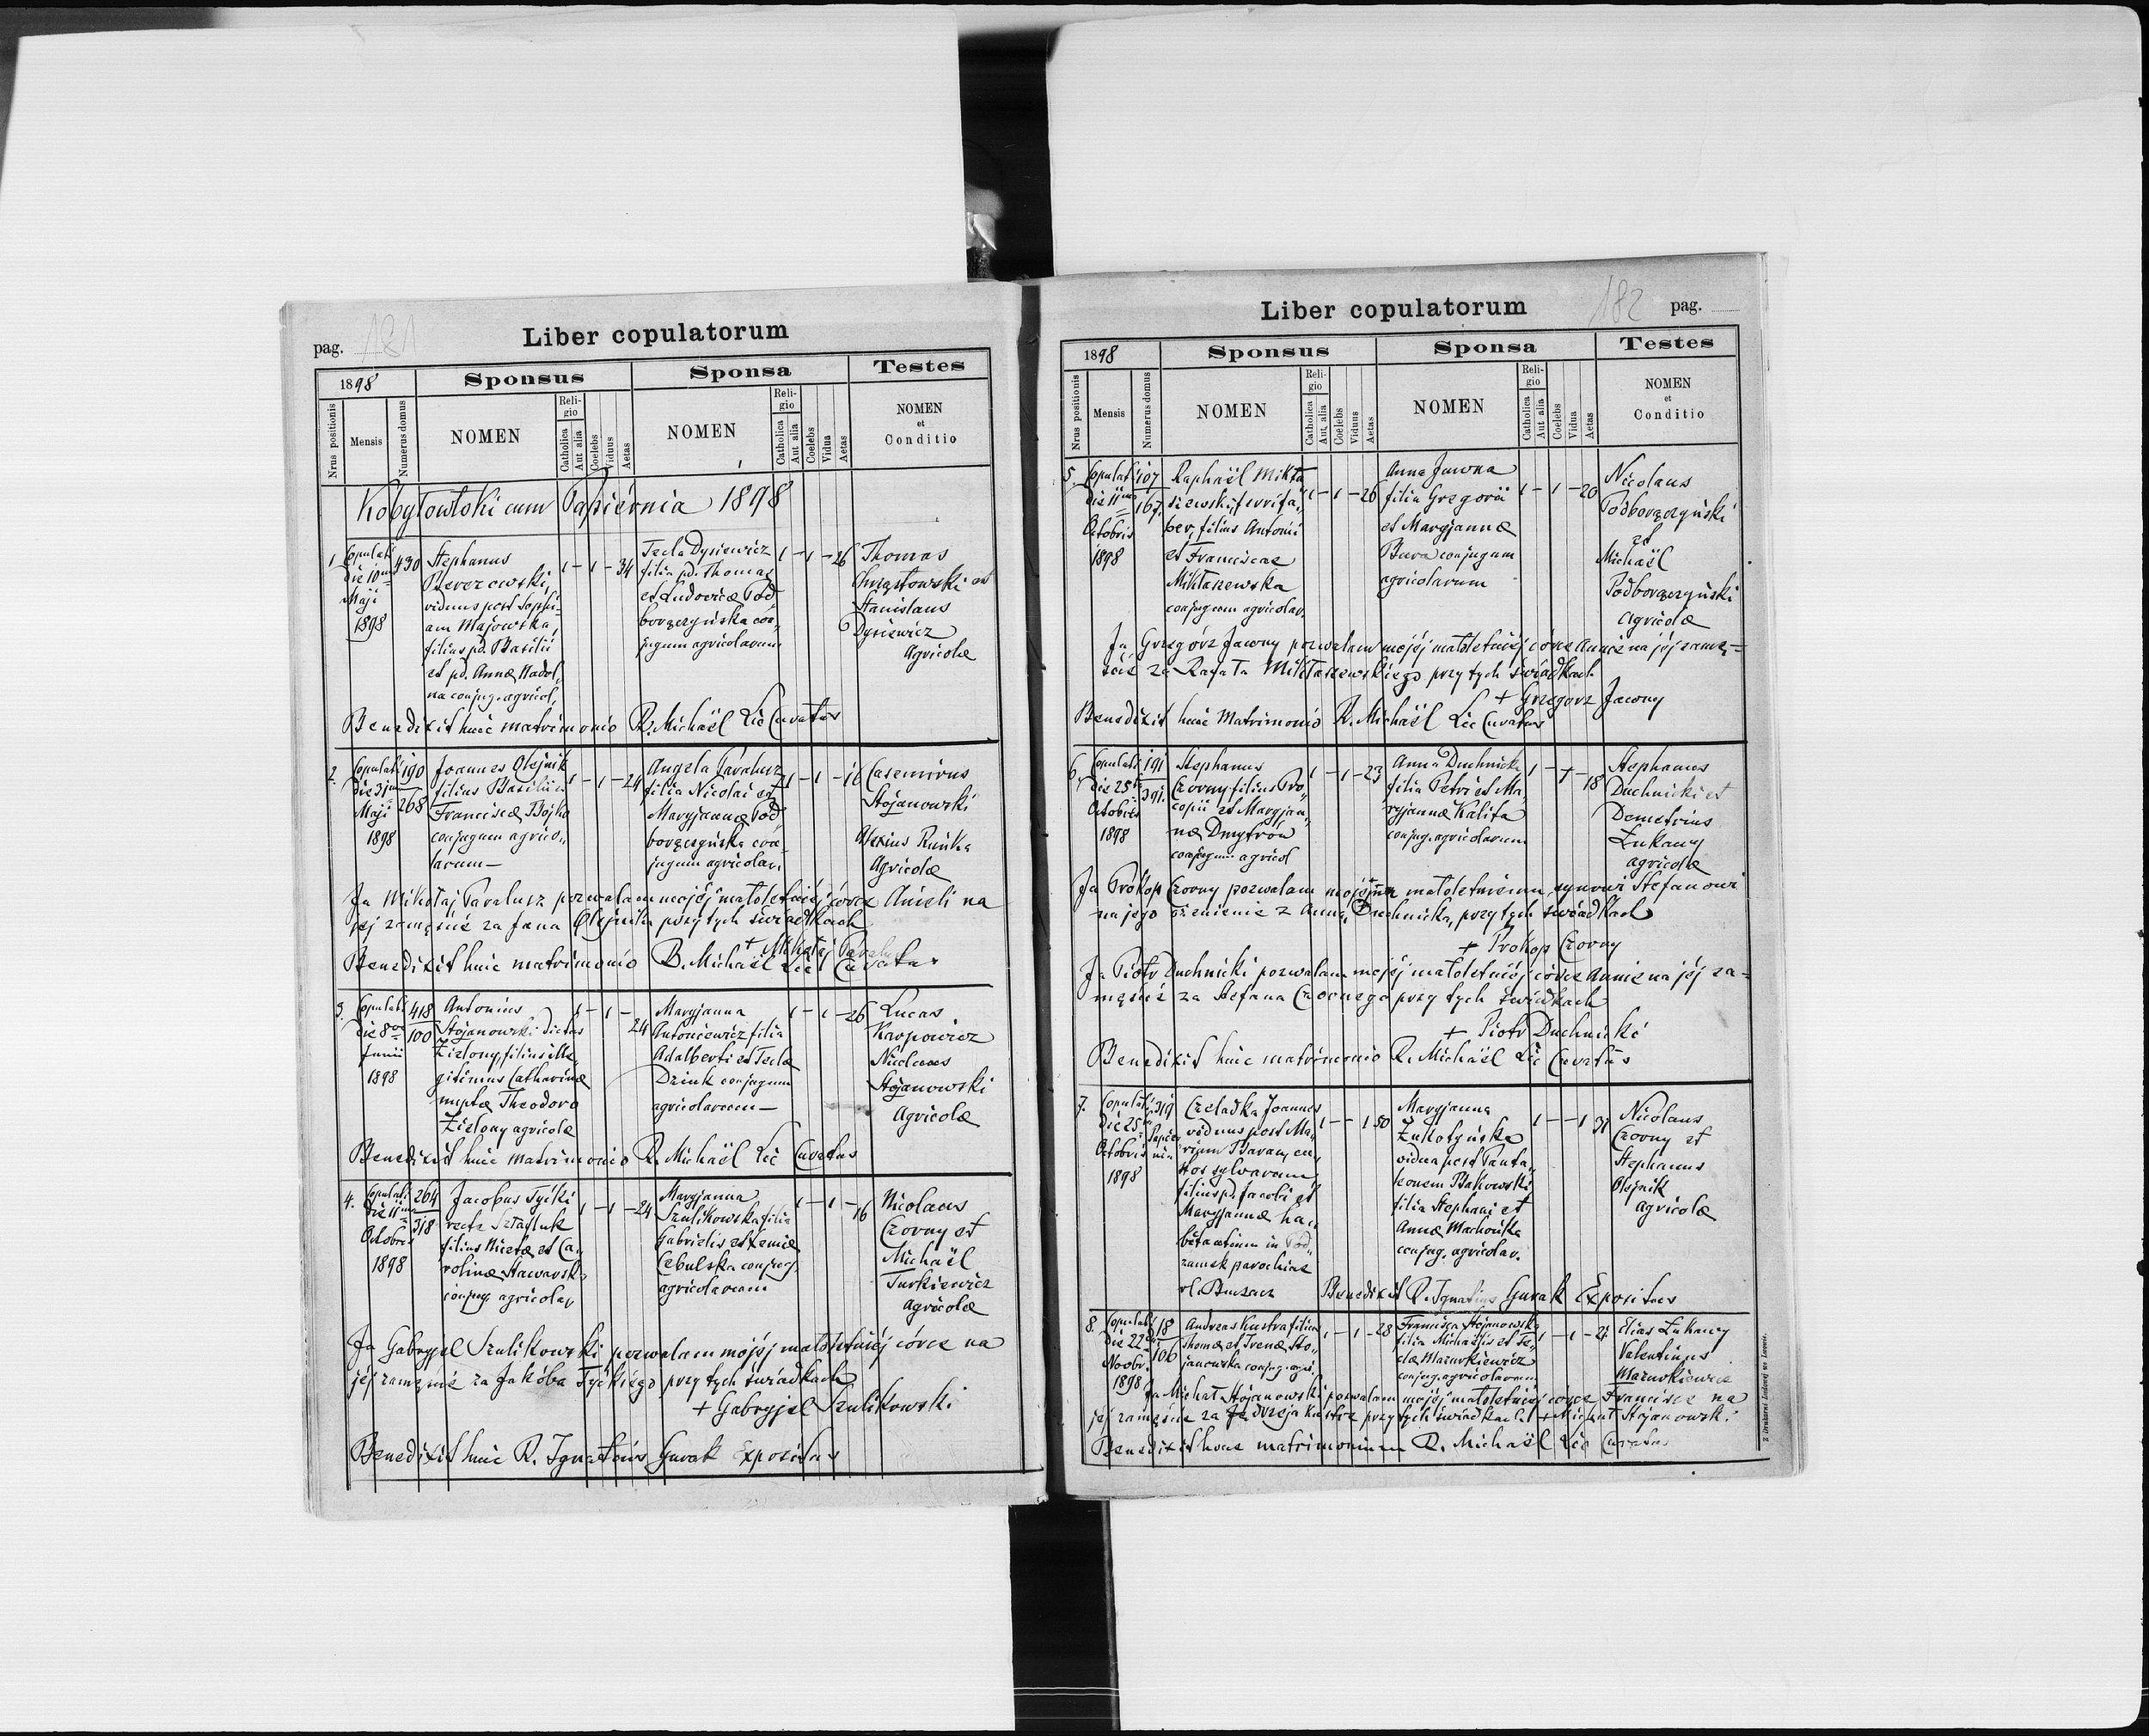 pag. 181
Liber copulatorum
1898
Sponsus
Sponsa
Testes
Nrus positionis
Mensis
Numerus domus
NOMEN
Religio
Catholica
Aut alia
Coelebs
Viduus
Aetas
NOMEN
Religio
Catholica
Aut alia
Coelebs
Vidua
Aetas
NOMEN
et
Conditio
Kobyłowłoki cum Papiernia 1898
1
Copulati
die 10ma
Maji
1898
430
Stephanus
Berezowski,
viduus post Sophi-
am Majowska,
filius pd. Basilii
et pd. Annæ Nadol,
na conjug. agricol,
1 - 1 - 34
Tecla Dysiewicz
filia pd. Thomas
et Ludovicæ Pod
boręczyńska con,
jugum agricolarum
1 - 1 - 26
Thomas
Chrząstowski et
Stanislaus
Dysiewicz
Agricolæ
Benedixit huic matrimonio R. Michaël Lic Curatus
2.
Copulati
die 31ma
Maji
1898
190
268
Joannes Olejnik
filius Basilii et
Franciscæ Bojko
conjugum agrico,,
larum —
1 - 1 - 24
Angela Paralusz
filia Nicolai et
Maryjannæ Pod
boręczyńska con-
jugum agricolar.
1 - 1 - 16
Casemirus
Stojanowski
Alexius Runka
Agricolæ
Ja Mikołaj Paralusz pozwalam mojéj małoletniéj córce Anieli na
jéj zamęście za Jana Olejnika przy tych świadkach
+ Mikołaj
Benedixit huic matrimonio R. Michaël Lic Curatus
3.
Copulati
die 8va
Junii
1898
418
100
Antonius
Stojanowski dictus
Zielony, filius ille,
gitimus Catharinæ
nuptæ Theodoro
Zielony agricolæ
1 - 1 - 24
Maryjanna
Antoniewicz filia
Adalberti et Teclæ
Dziuk conjugum
agricolarum —
1 - 1 - 26
Lucas
Karpowicz
Nicolaus
Stojanowski
Agricolæ
Benedixit huic matrimonio R. Michaël Lic Curatus
4.
Copulati
die 11ma
Octobris
1898
264
318
Jacobus Tycki
recte
filius Nicetæ et Ca,
rolinæ
conjug. agricolar,
1 - 1 - 24
Maryjanna
Szulikowska filia
Gabrielis et Xeniæ
Cebulska conjug.
agricolarum
1 - 1 - 16
Nicolaus
Czorny et
Michaël
Turkiewicz
Agricolæ
Ja Gabryjel Szulikowski pozwalam mojéj małoletniéj córce na
jéj zamęście za Jakóba Tyckiego przy tych świadkach
+ Gabryjel Szulikowski
Benedixit huic R. Ignatius Gurak Expositus
Liber copulatorum
182 pag.
1898
Sponsus
Sponsa
Testes
Nrus positionis
Mensis
Numerus domus
NOMEN
Religio
Catholica
Aut alia
Coelebs
Viduus
Aetas
NOMEN
Religio
Catholica
Aut alia
Coelebs
Vidua
Aetas
NOMEN
et
Conditio
5.
Copulati
die 11ma
Octobris
1898
107
167.
Raphaël Mikta
szewski,
ber, filius Antonii
et Franciscae
Miktaszewska
conjugum agricolar.
1 - 1 - 26
Anna Jawna
filia Gregorii
et Maryjannæ
Bura conjugum
agricolarum
1 - 1 - 20
Nicolaus
Podboręczyński
et
Michaël
Podboręczyński
Agricolæ
Ja Grzegórz Jawny pozwalam mojéj małoletniéj córce Annie na jéj zamę-
ście za Rafała Miktaszewskiego przy tych świadkach
+ Grzegorz Jawny
Benedixit huic Matrimonio R. Michaël Lic Curatus
6.
Copulati
die 25ta
Octobris
1898
191
391.
Stephanus
Czorny filius Pro,
copii et Maryjan,
næ Dmytrów
conjugum agricol
1 - 1 - 23
Anna Duchnicka
filia Petri et Ma,
ryjannæ Kalita
conjug. agricolarum
1 - 1 - 18
Stephanus
Duchnicki et
Demetrius
Łukawy
agricolæ
Ja Prokop Czorny pozwalam mojemu małoletniemu synowi Stefanowi
na jego ożenienie z Anną Duchnicką, przy tych świadkach
+ Prokop Czorny
Ja Piotr Duchnicki pozwalam mojéj małoletniéj córce Annie na jéj za-
męście za Stefana Czornego przy tych świadkach
+ Piotr Duchnicki
Benedixit huic matrimonio R. Michaël Lic Curatus
7.
Copulati
die 25ta
Octobris
1898
319
Papier
nia
Czeladka Joannes
viduus post Ma,
riam Baran, cu,
stos sylvarum
filius pd. Jacobi et
Maryjannæ ha,,
bitantium in Pod,,
zamek parochiae
rl. Buczacz
1 - - 1 50
Maryjanna
Żukotyńska
vidua post Panta,
leonem Bakowski
filia Stephani et
Annæ Machońska
conjug. agricolar.
1 - - 1 31
Nicolaus
Czorny et
Stephanus
Olejnik
agricolæ
Benedixit R. Ignatius Gurak Expositus
8.
Copulati
die 22da
Novbr.
1898
18
106
Andreas Kustra filius
Thomæ et Irenæ Sto,
janowska conjug. agri.
1 - 1 - 28
Francisca Stojanowska
filia Michaëlis et Te,
clæ Mazurkiewicz
conjug. agricolarum
1 - 1 - 21
Elias Łukawy
Valentinus
Mazurkiewicz
Ja Michał Stojanowski pozwalam mojéj małoletniéj córce Francisce na
jéj zamęście za Jędrzeja Kustrę przy tych świadkach + Michał Stojanowski
Benedixit hunc matrimonium R. Michaël Lic Curatus
Z drukarni Ludowej we Lwowie.